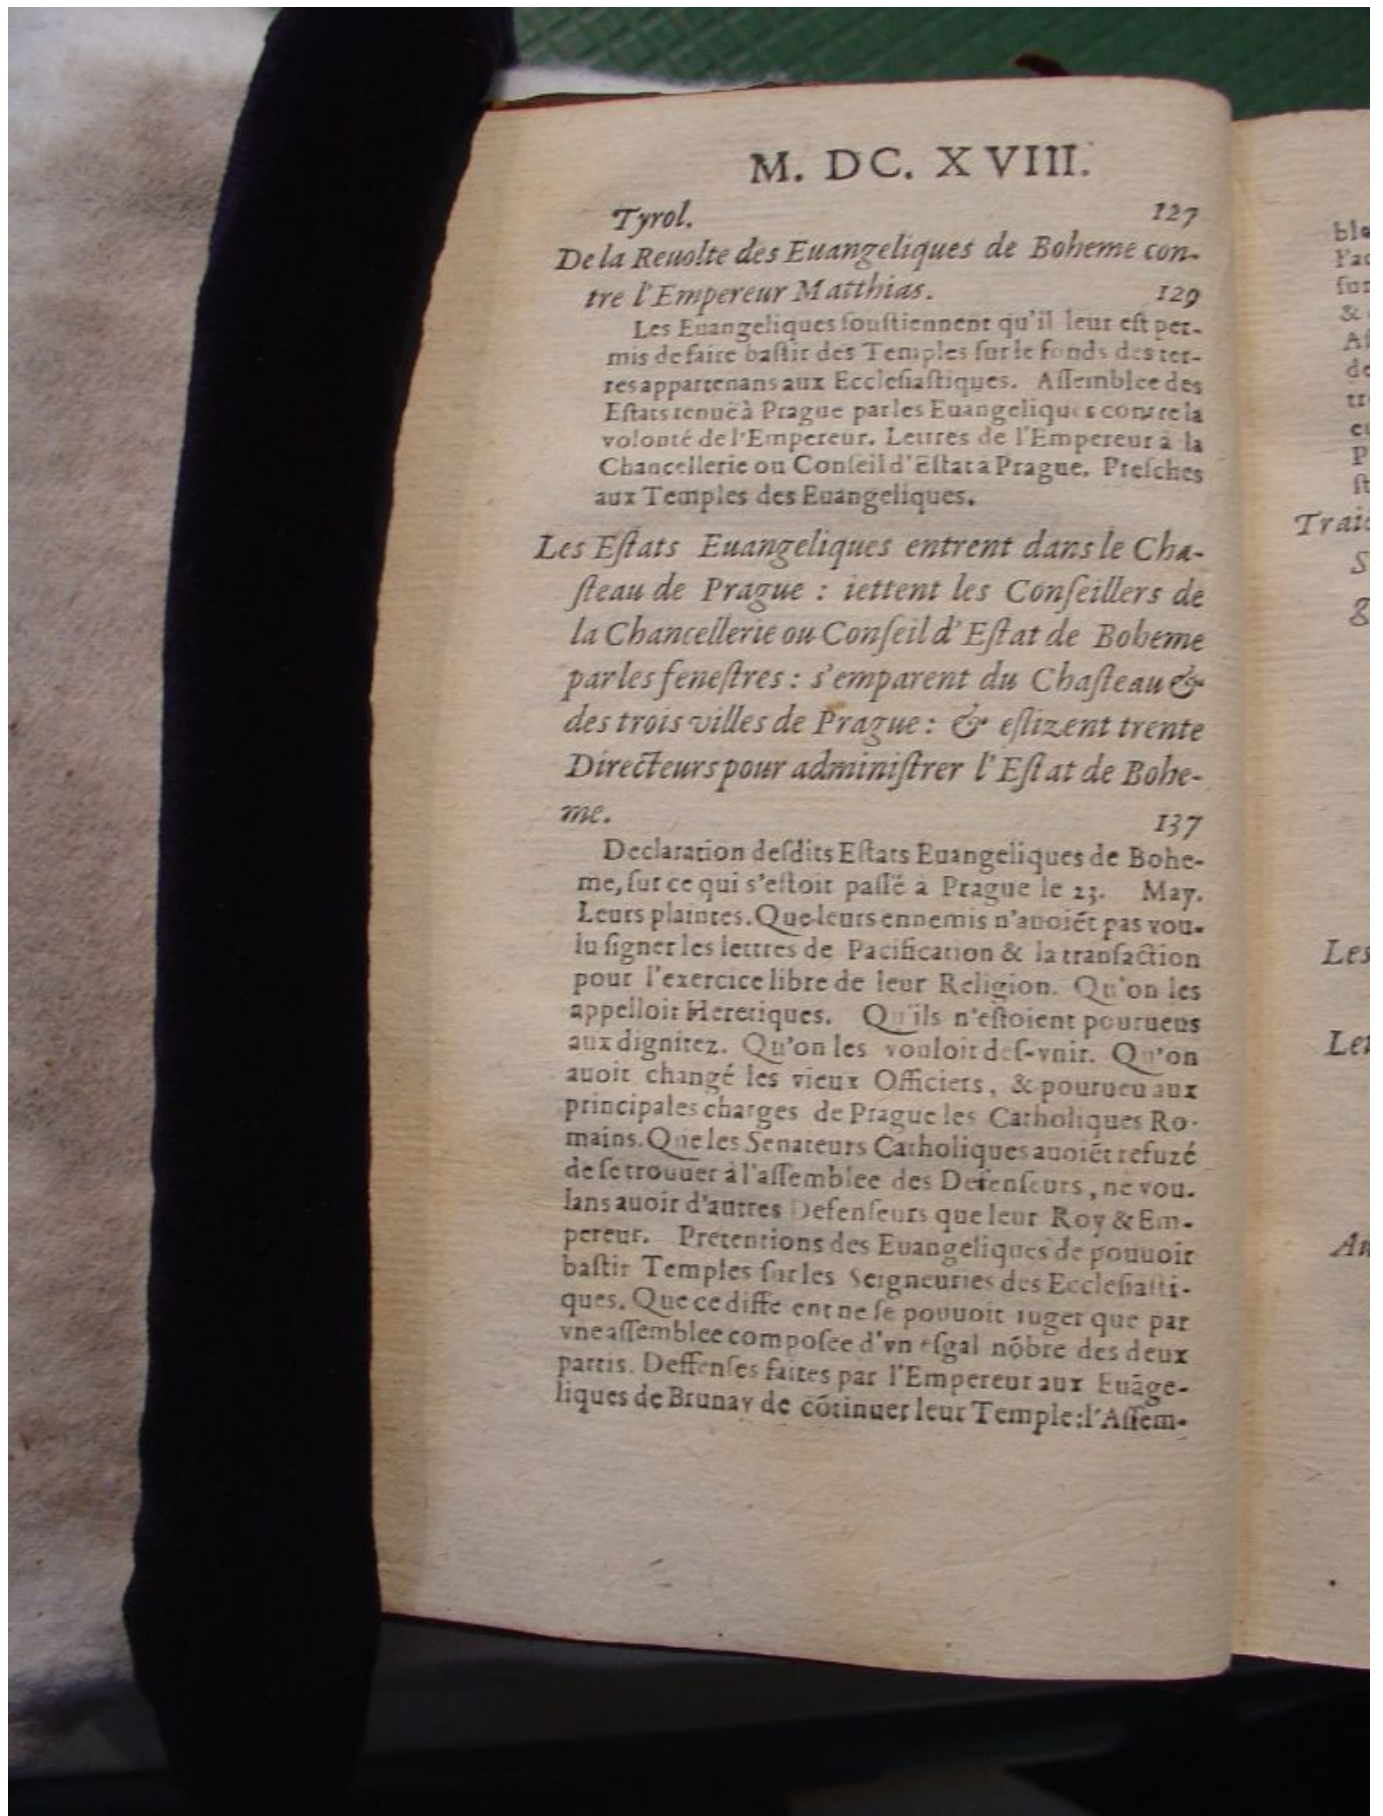 M. DC. XVIII.
Tyrol. 127
De la Reuolte des Euangeliques de Boheme con-
tre l'Empereur Matthias. 129
Les Euangeliques ſouſtiennent qu'il leur eſt per-
mis de faire baſtir des Temples ſur le fonds des ter-
res appartenans aux Eccleſiaſtiques. Aſſemblee des
Eſtats tenuë à Prague par les Euangeliques contre la
volonté de l'Empereur. Lettres de l'Empereur à la
Chancellerie ou Conſeil d'Eſtat à Prague. Preſches
aux Temples des Euangeliques.
Les Eſtats Euangeliques entrent dans le Cha-
ſteau de Prague : iettent les Conſeillers de
la Chancellerie ou Conſeil d'Eſtat de Boheme
par les feneſtres : s'emparent du Chaſteau &
des trois villes de Prague : & eſlizent trente
Directeurs pour adminiſtrer l'Eſtat de Bohe-
me. 137
Declaration deſdits Eſtats Euangeliques de Bohe-
me, ſur ce qui s'eſtoit paſſé à Prague le 23. May.
Leurs plaintes. Que leurs ennemis n'auoiẽt pas vou-
lu ſigner les lettres de Pacification & la tranſaction
pour l'exercice libre de leur Religion. Qu'on les
appelloit Heretiques. Qu'ils n'eſtoient pourueus
aux dignitez. Qu'on les vouloit deſ-vnir. Qu'on
auoit changé les vieux Officiers, & pourueu aux
principales charges de Prague les Catholiques Ro-
mains. Que les Senateurs Catholiques auoiẽt refuzé
de ſe trouuer à l'aſſemblee des Defenſeurs, ne vou-
lans auoir d'autres Defenſeurs que leur Roy & Em-
pereur. Pretentions des Euangeliques de pouuoir
baſtir Temples ſur les Seigneuries des Eccleſiaſti-
ques. Que ce differ ent ne ſe pouuoit iuger que par
vne aſſemblee compoſee d'vn eſgal nõbre des deux
partis. Deffenſes faites par l'Empereur aux Euãge-
liques de Brunay de cõtinuer leur Temple: l'Aſſem-
ble
Trai
S
g
Les